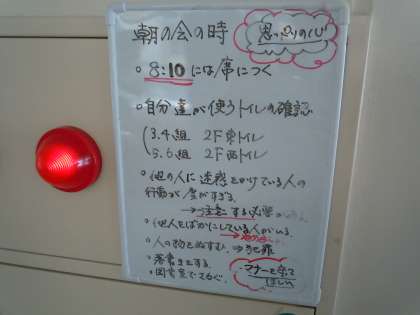 朝の会の時
8:10には席につく
自分達が使うトイレの確認
3.4組 2F東トイレ
5.6組 2F西トイレ
他の人に迷惑をかけている人の
行動が度がすぎる。
→注意する必要
他人をばかにしている人がいる。
人の物をぬすむ。⇒犯罪
落書きをする。
図書室で
マナーを守って
ほしい